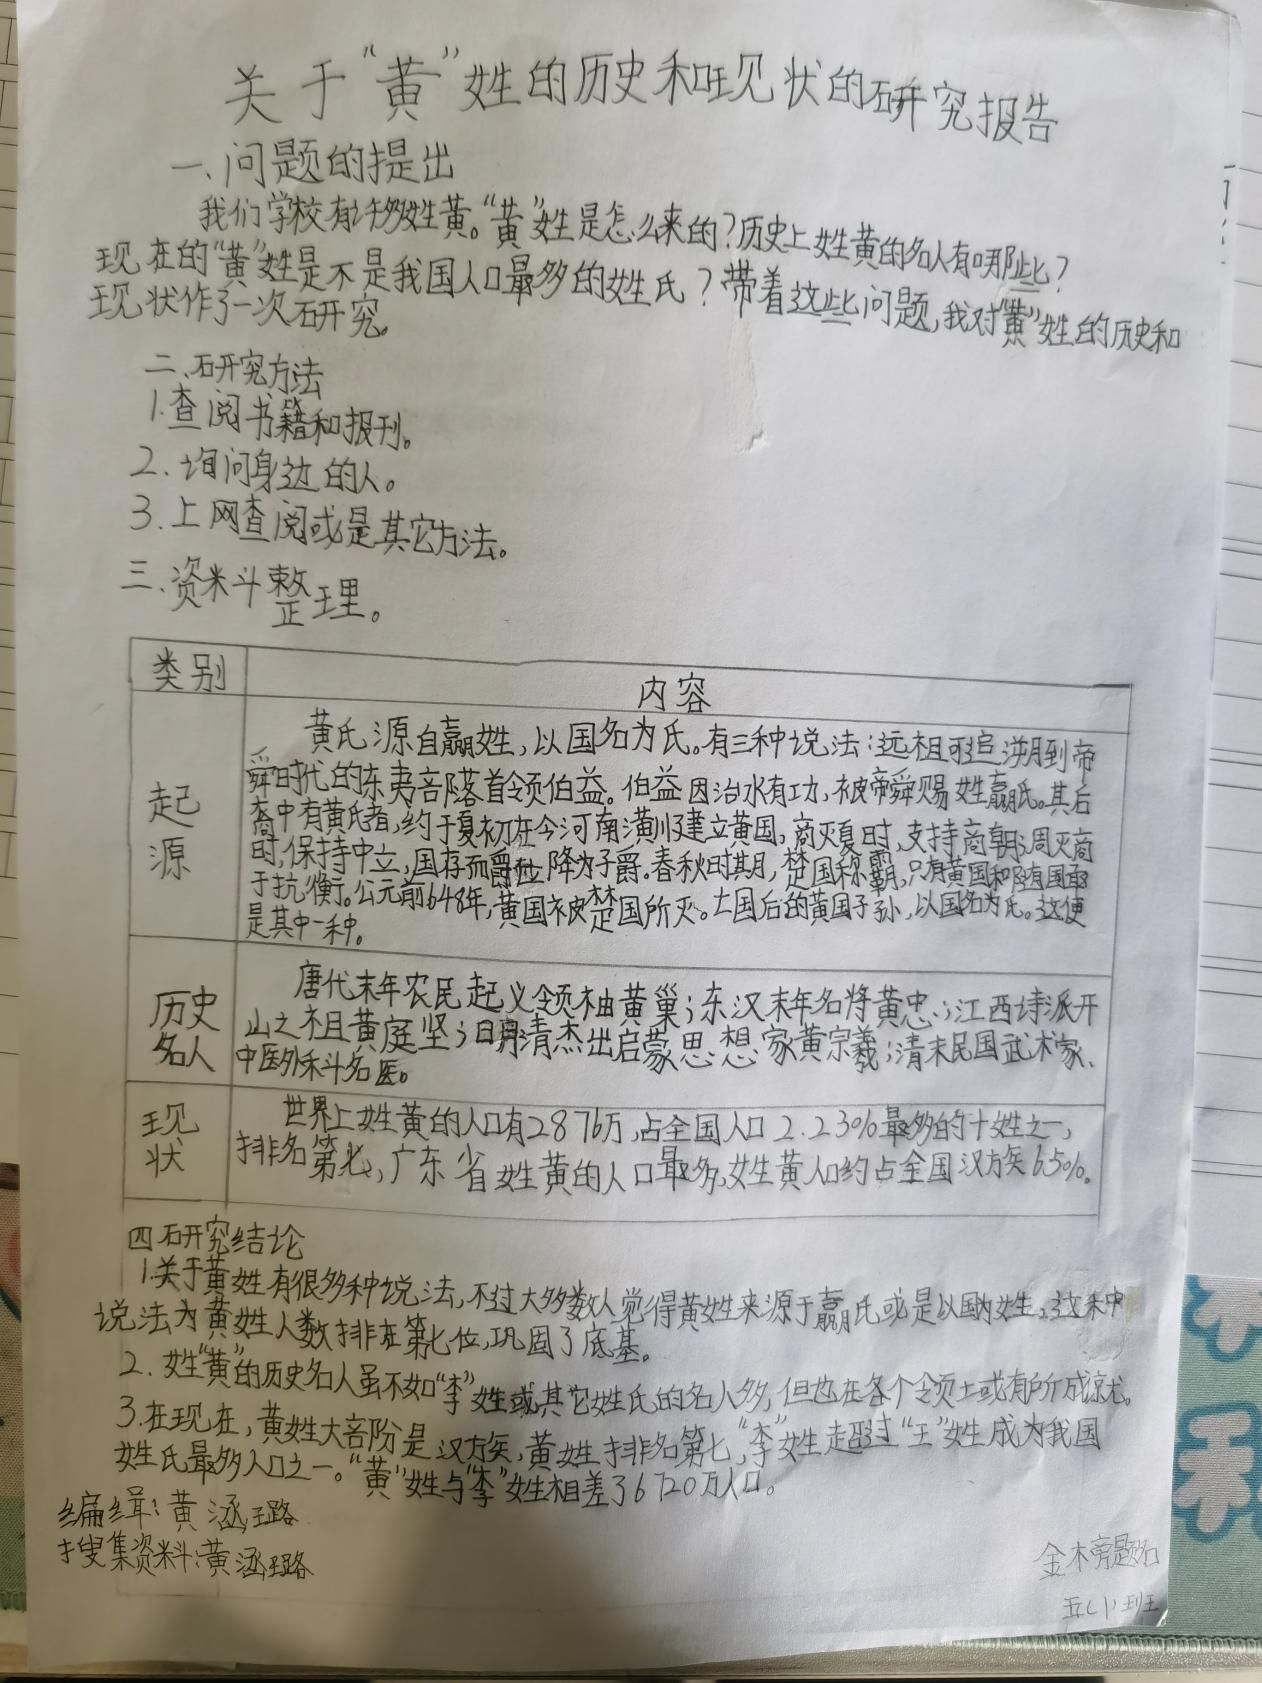 关于“黄”姓的历史和现状的研究报告
一、问题的提出
我们学校有许多姓黄。“黄”姓是怎么来的?历史上姓黄的名人有哪些?
现在的“黄”姓是不是我国人口最多的姓氏?带着这些问题,我对“黄”姓的历史和
现状作了一次研究。
二、研究方法
1.查阅书籍和报刊。
2.询问身边的人。
3.上网查阅或是其它方法。
三.资料整理。
类别
内容
起源
黄氏源自嬴姓,以国名为氏。有三种说法:远祖可追溯到帝
舜时代的东夷部落首领伯益。伯益因治水有功,被帝舜赐姓嬴氏。其后
裔中有黄氏者,约于夏初在今河南潢川建立黄国,商灭夏时,支持商朝;周灭商
时,保持中立,国存而爵位降为子爵.春秋时期,楚国称霸,只有黄国和随国敢
于抗衡。公元前648年,黄国被楚国所灭。亡国后的黄国子孙,以国名为氏。这便
是其中一种。
历史
名人
唐代末年农民起义领袖黄巢;东汉末年名将黄忠;江西诗派开
山之祖黄庭坚;明清杰出启蒙思想家黄宗羲;清末民国武术家、
中医外科名医。
现
状
世界上姓黄的人口有2876万,占全国人口2.23%最多的十姓之一,
排名第七,广东省姓黄的人口最多,姓黄人口约占全国汉族6.5%。
四研究结论
1.关于黄姓有很多种说法,不过大多数人觉得黄姓来源于嬴氏或是以国为姓,这种
说法为黄姓人数排在第七位,巩固了底基。
2.姓“黄”的历史名人虽不如“李”姓或其它姓氏的名人多,但也在各个领土或有所成就。
3.在现在,黄姓大部份是汉族,黄姓排名第七,“李”姓超过“王”姓成为我国
姓氏最多人口之一。“黄”姓与“李”姓相差了6720万人口。
编缉:黄涵璐
搜集资料:黄涵璐
五(1)班